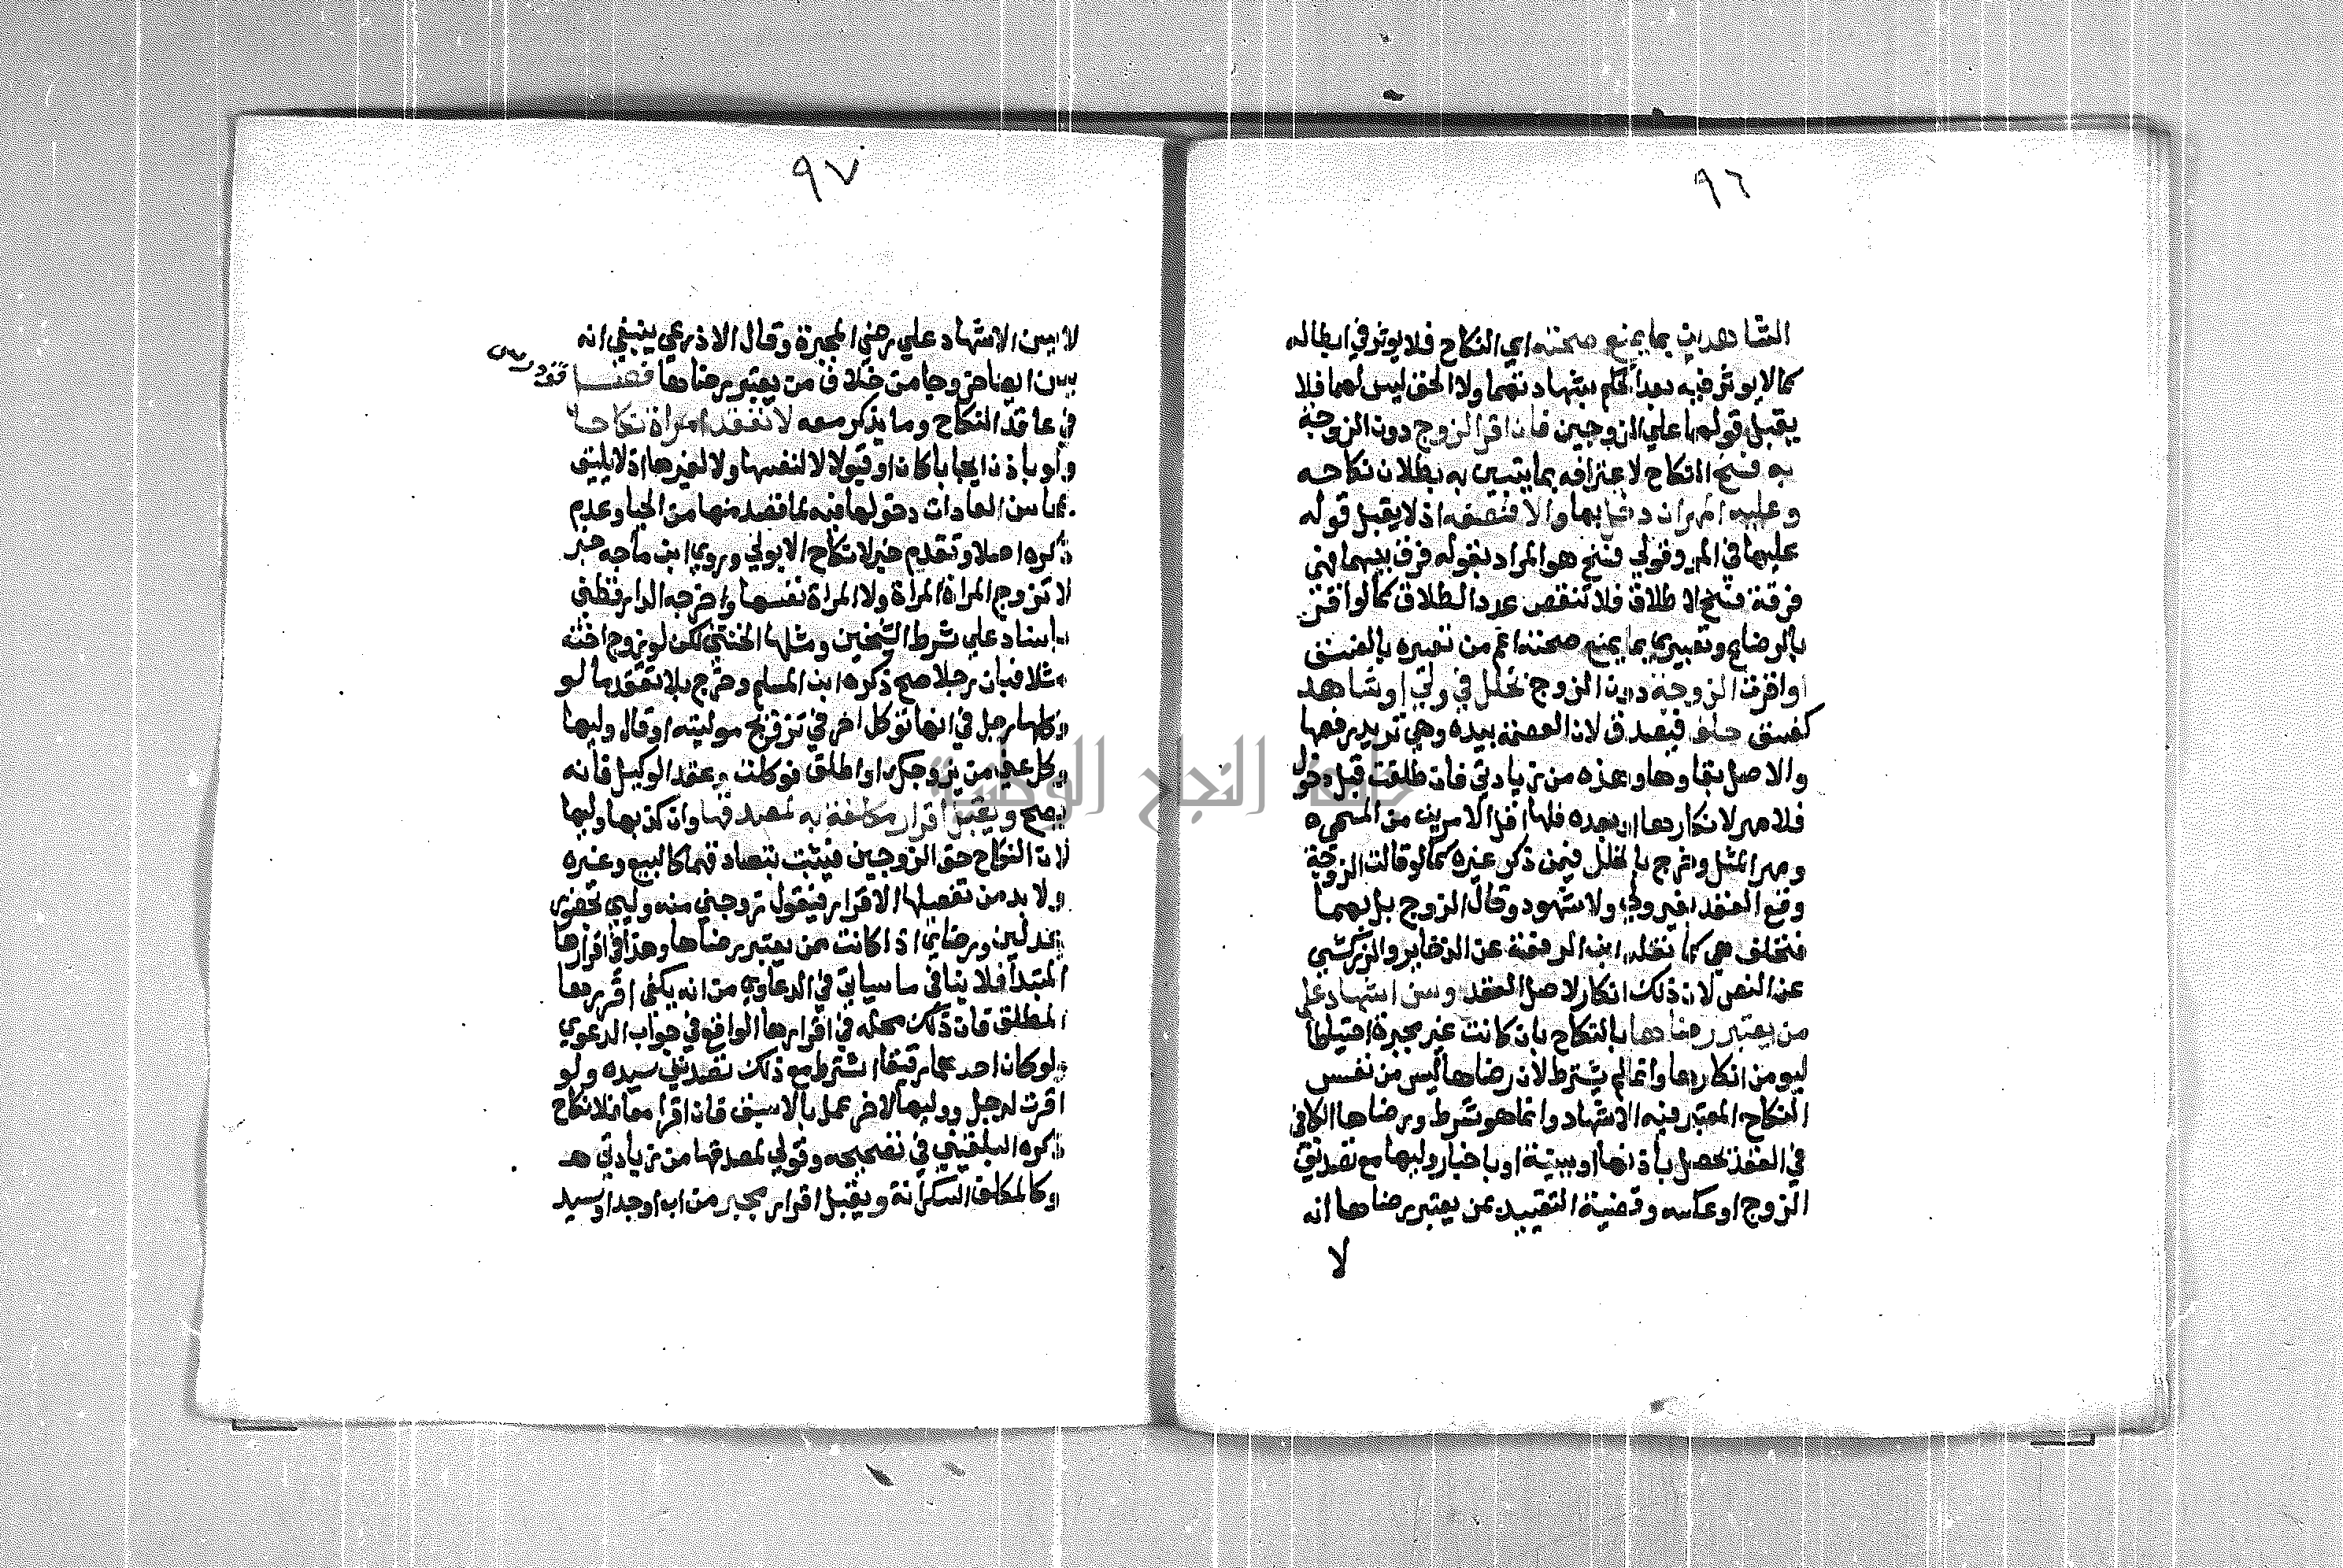 ٩٦
الشاهدين بما يمنع صحته اي النكاح فلا يوثر في ابطاله
كما لا يوثر فيه بعد الحكم بشهادتهما ولان الحق ليس لهما فلا
يقبل قولهما علي الزوجين فان اقر الزوج دون الزوجة
به فسخ النكاح لاعترافه بما يتبين به بطلان نكاحه
وعليه المهر ان دخل بها والا فنصفه اذ لا يقبل قوله
عليها في المهر وقولي فسخ هو المراد بقوله فرق بينهما فهي
فرقة فسخ لا طلاق فلا تنقص عدد الطلاق كما لو اقر
بالرضاع وتعبيري بما يمنع صحته اعم من تعبيره بالفسق
او اقرت الزوجة دون الزوج بخلل في ولي او شاهد
كفسق حلف فيصدق لان العصمة بيده وهي تريد رفعها
والاصل بقاوها وهذه من زيادتي فان طلقت قبل دخول
فلا مهر لانكارها او بعده فلها اقل الامرين من المسمي
ومهر المثل وخرج بالخلل فيمن ذكر غيره كما لو قالت الزوجة
وقع العقد بغير ولي ولا شهود وقال الزوج بل بهما
فتحلف هي كما نقله ابن الرفعة عن الذخاير والزركشي
عن النص لان ذلك انكار لاصل العقد وسن اشهاد علي
من يعتبر رضاها بالنكاح بان كانت غير مجبرة احتياطا
ليومن انكارها وانما لم يشترط لان رضاها ليس من نفس
النكاح المعتبر فيه الاشهاد وانما هو شرط ورضاها الكافي
في العقد يحصل باذنها او ببينة او باخبار وليها مع تصديق
الزوج او عكسه وقضية التقييد بمن يعتبر رضاها انه
لا
٩٧
لا يسن الاشهاد علي رضي المجبرة وقال الاذرعي ينبغي انه
يسن ايضا خروجا من خلاف من يعتبر رضاها فصل
في عاقد النكاح وما يذكر معه لا تعقد امراة نكاحا
ولو باذن ايجابا كان او قبولا لا لنفسها ولا لغيرها اذ لا يليق
بمحاسن العادات دخولها فيه لما قصد منها من الحيا وعدم
ذكره اصلا وتقدم خبر لا نكاح الا بولي وروي ابن ماجه خبر
لا تزوج المراة المراة ولا المراة نفسها واخرجه الدارقطني
باسناد علي شرط الشيخين ومثلها الخنثي لكن لو زوج اخته
مثلا فبان رجلا صح ذكره ابن المسلم وخرج بلا تعقد ما لو
وكلها رجل في انها توكل اخر في تزويج موليته او قال وليها
وكل عني من يزوجك او اطلق فوكلت وعقد الوكيل فانه
يصح ويقبل اقرار مكلفة به لمصدقها وان كذبها وليها
لان النكاح حق الزوجين فيثبت بتصادقهما كالبيع وغيره
ولا بد من تفصيلها الاقرار فيقول زوجني منه وليي بحضور
عدلين ورضاي اذا كانت ممن يعتبر رضاها وهذا في اقرارها
المبتدا فلا ينافي ما سياتي في الدعاوي من انه يكفي اقرارها
المطلق فان ذلك محله في اقرارها الواقع في جواب الدعوي
ولو كان احدهما رقيقا اشترط مع ذلك تصديق سيده ولو
اقرت لرجل ووليها لاخر عمل بالاسبق فان اقرا معا فلا نكاح
ذكره البلقيني في تصحيحه وقولي لمصدقها من زيادتي هـ
وكالمكلفة السكرانة ويقبل اقرار مجبر من اب او جد او سيد